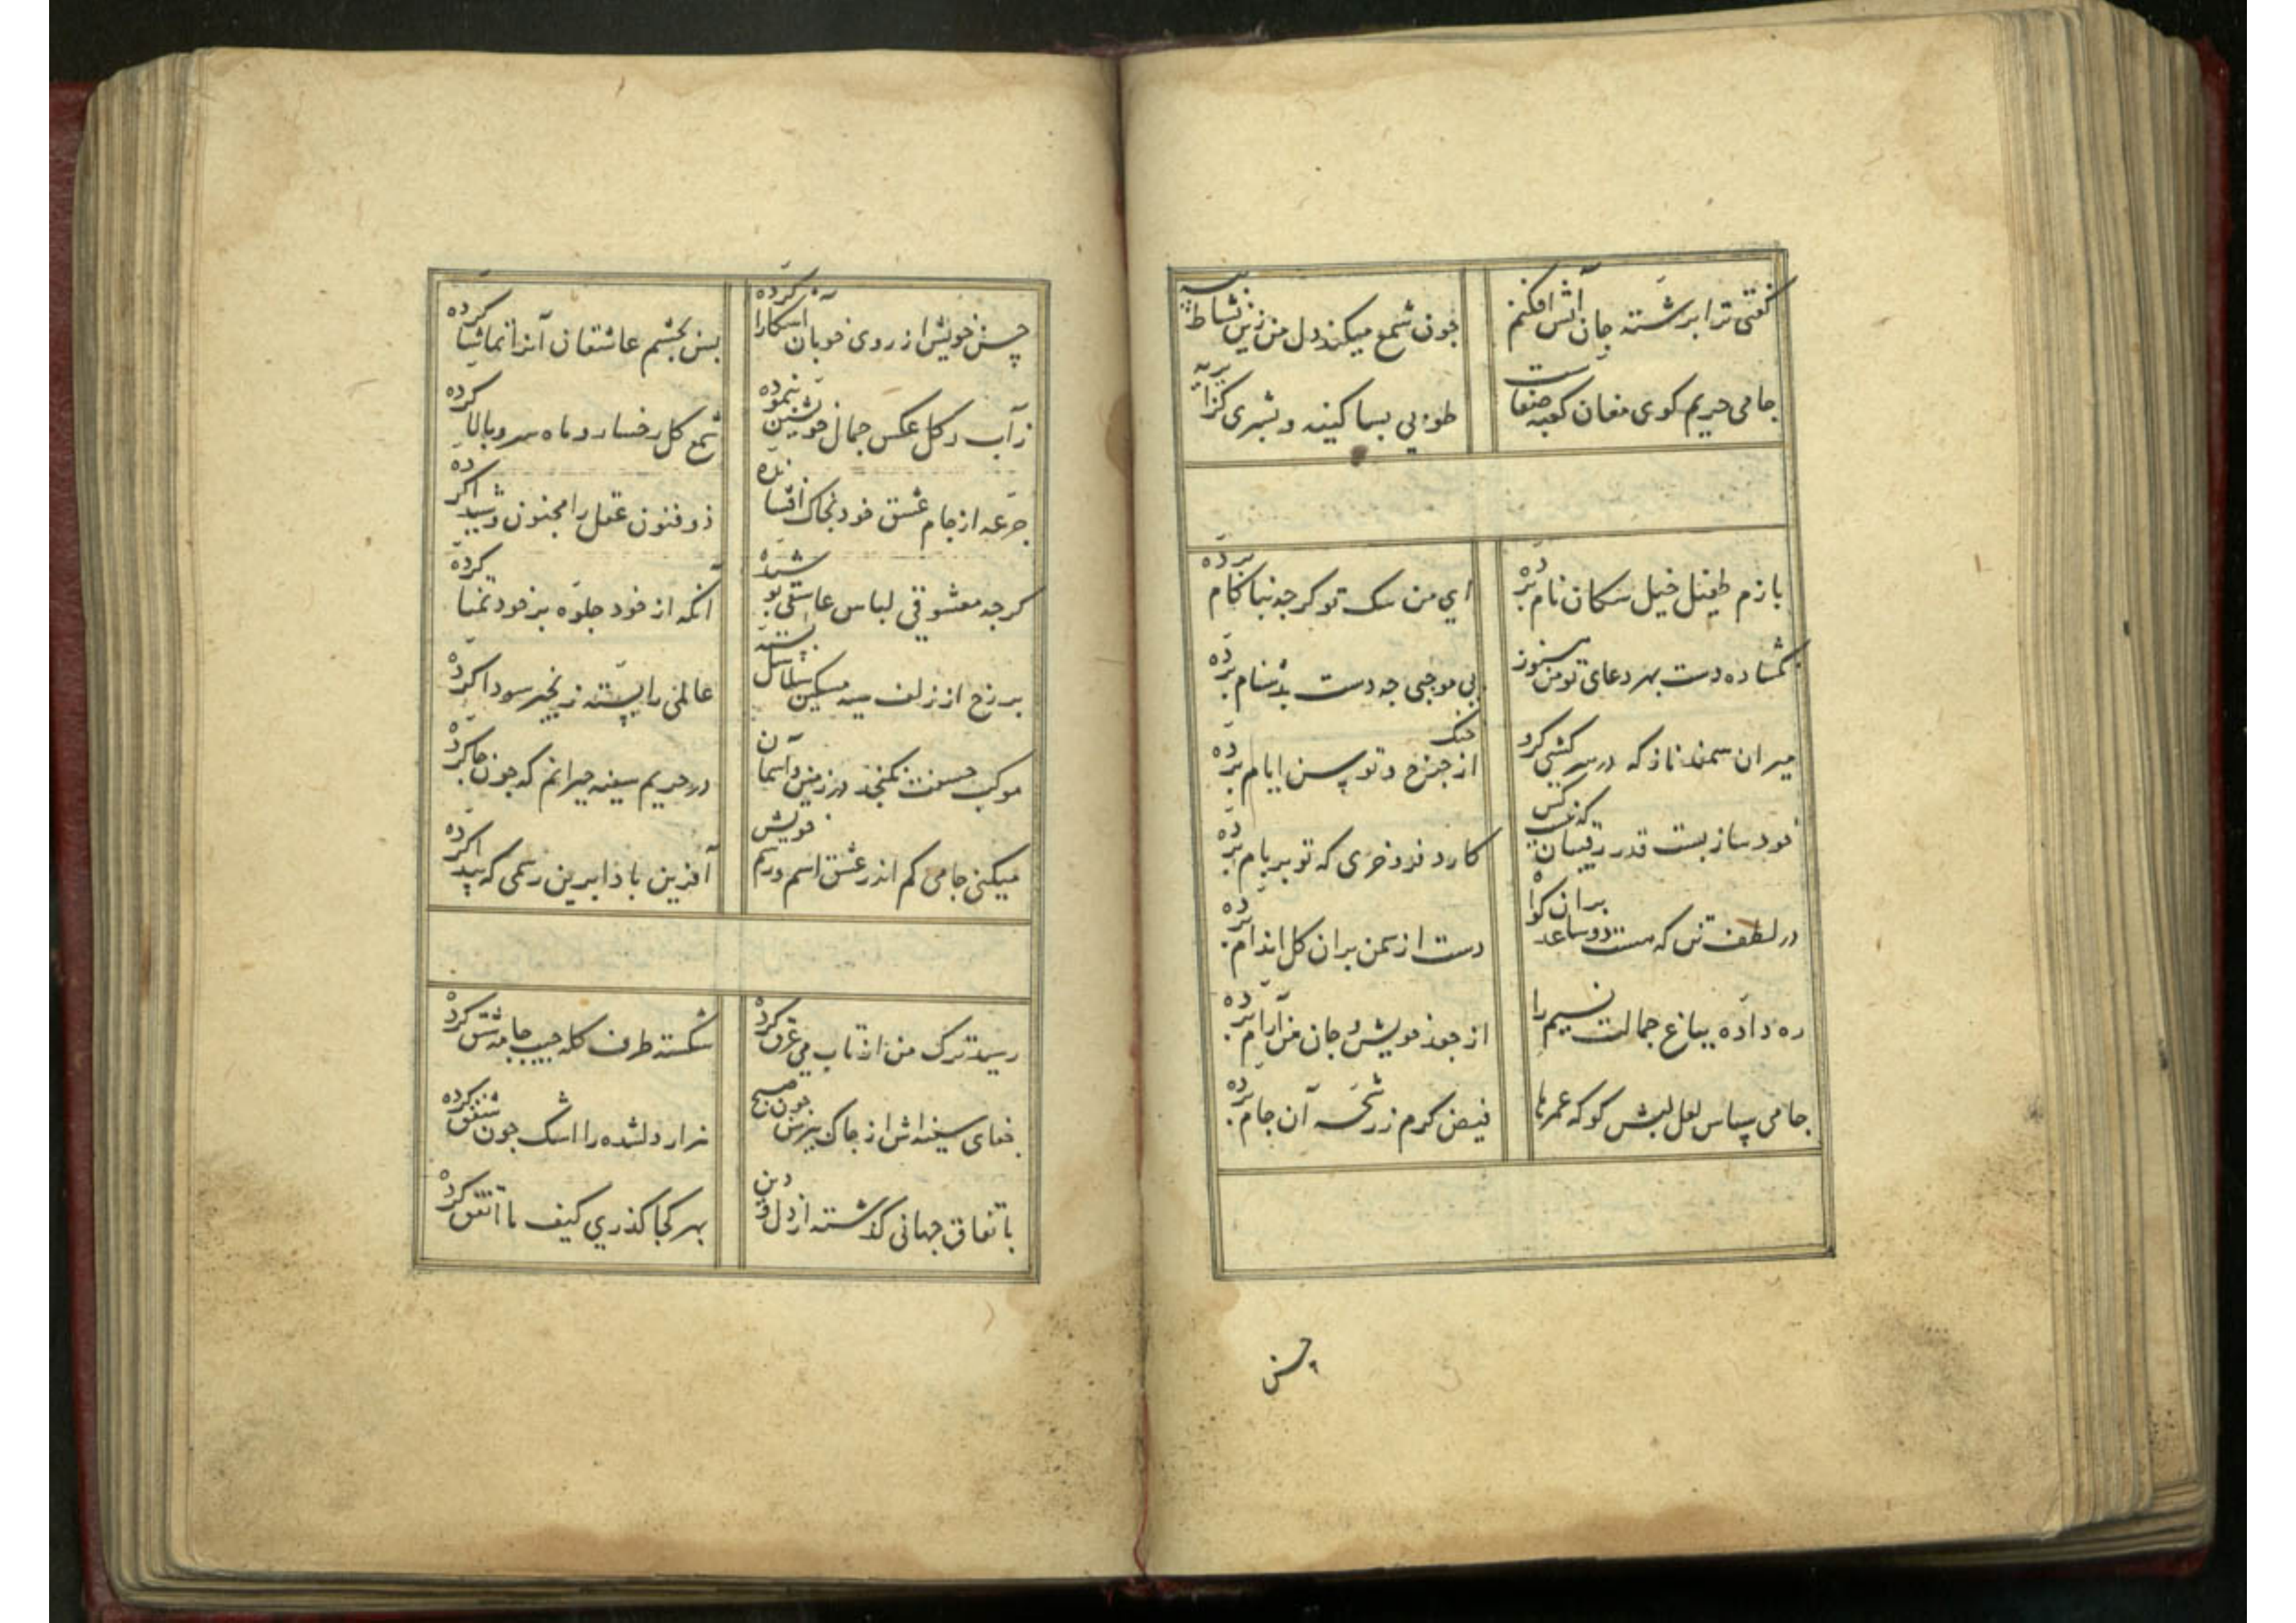 گفتی ترا بر شته جان آتش افکنم
جون شمع میکند دل من زین نشاط
جامی حریم کوی مغان کعبه صفاست
طوبی بما کینه و بشری لزایریه
بازم طفیل خیل سکان نام برده
ای من سک تو کرجه نباکام برده
بکشاده دست بهر دعای تو من هنوز
بی موجبی جه دست بدشنام برده
میران سمند ناز که در سرکشی کرو
از خنک جرخ و توسن ایام برده
خود ساز پست قدر رقیبان که نیست کس
کارد فرو خری که تو بر بام برده
در لطف تن که هست دو ساعد بران کواه
دست از سمن بران کل اندام برده
ره داده بباغ جمالت نسیم را
از جعد خویش و جان من آرام برده
جامی سپاس لعل لبش کو که عمرها
فیض کرم ز رشحه آن جام برده
حسن
حسن خویش از روی خوبان آشکارا کرده
پس بچشم عاشقان آنرا تماشا کرده
ز آب و کل عکس جمال خویشتن بنموده
شمع کل رخسار و ماه سرو بالا کرده
جرعه از جام عشق خود بخاک افشانده
ذو فنون عقل را مجنون و شیدا کرده
کرجه معشوقی لباس عاشقی پوشیده
آنکه از خود جلوه بر خود تمنا کرده
بر رخ از زلف سیه مشکین سلاسل بسته
عالمی را بسته زنجیر سودا کرده
موکب حسنت نکنجد در زمین و آسمان
در حریم سینه حیرانم که جون جا کرده
میکنی جامی کم اندر عشق اسم و رسم خویش
آفرین بادا برین رسمی که پیدا کرده
رسید ترک من از تاب می عرق کرده
شکسته طرف کله جیب جامه شق کرده
صفای سینه اش از جاک پیرهن جون صبح
هزار دلشده را اشک جون شفق کرده
باتفاق جهانی کذشته از دل و دین
بهر کجا کذری کیف ما اتفق کرده